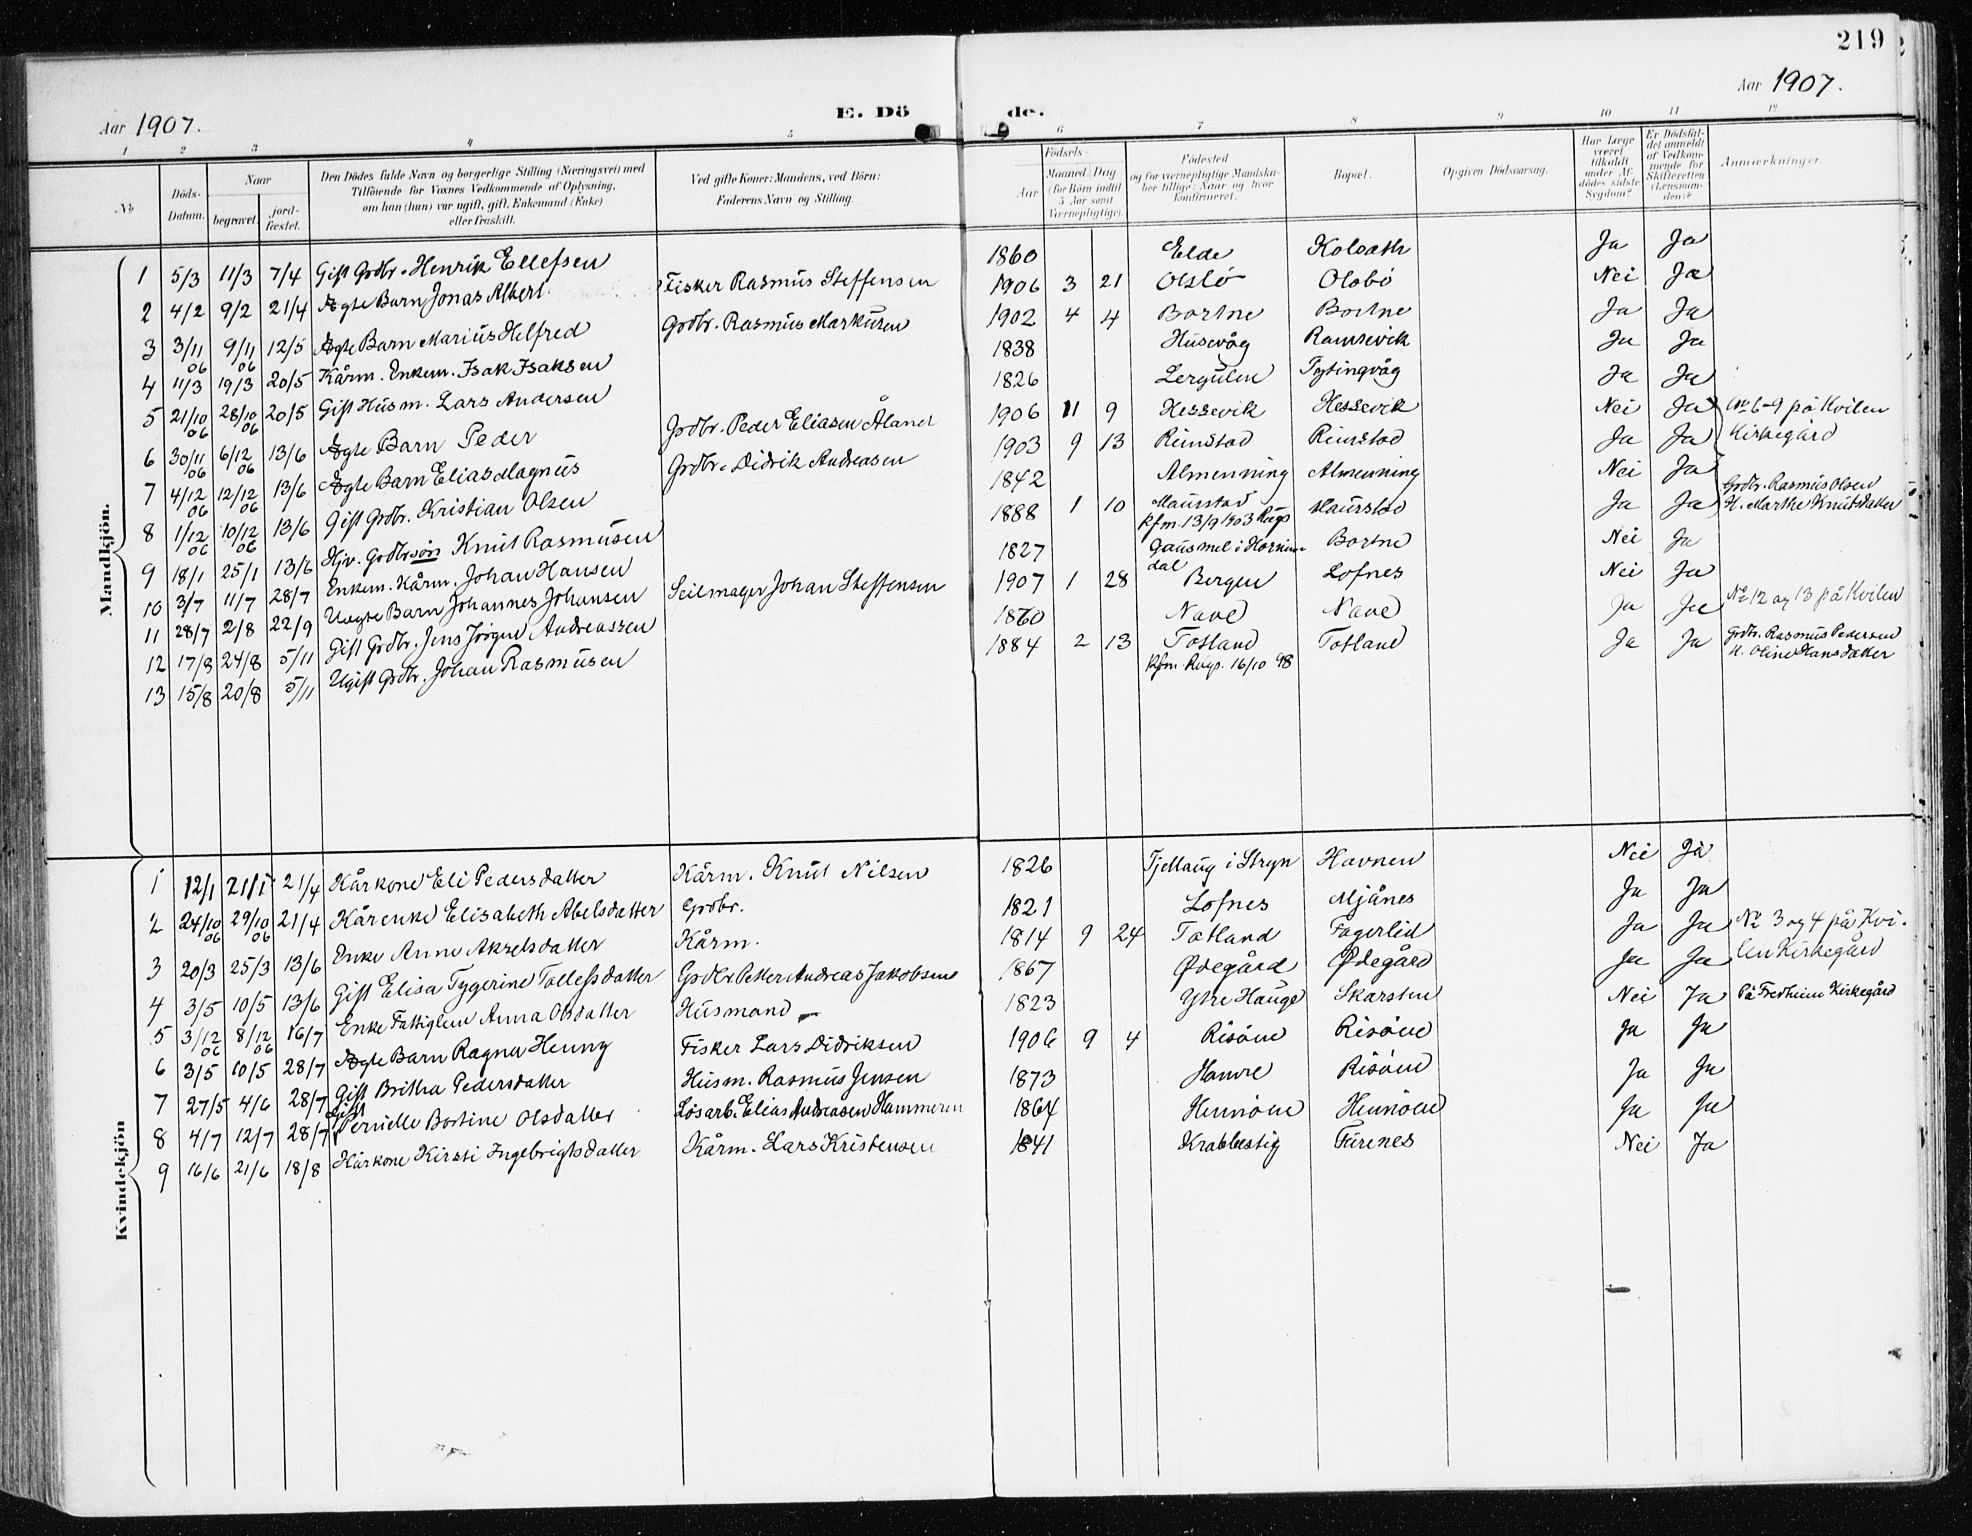 219
Aar 1907. E. Döde. Aar 1907.
1 2 3 4 5 6 7 8 9 10 11 12
No | Döds-Datum. | Naar begravet. | jordfæstet. | Den Dödes fulde Navn og borgerlige Stilling (Næringsvei) med Tilföiende for Voxnes Vedkommende af Oplysning, om han (hun) var ugift, gift, Enkemand (Enke) eller fraskilt. | Ved gifte Koner: Mandens, ved Börn: Faderens Navn og Stilling. | Födsels- Aar | Maaned | Dag (for Börn indtil 5 Aar samt Værnepligtige). | Födested og for værnepligtige Mandskaber tillige: Naar og hvor konfirmeret. | Bopæl. | Opgiven Dödsaarsag. | Har Læge været tilkaldt under Afdödes sidste Sygdom? | Er Dödsfaldet anmeldt af Vedkommende for Skifteretten (Lensmanden)? | Anmærkninger
Mandkjön.
1 5/3 11/3 7/4 Gift Grdbr. Henrik Ellefsen 1860 Elde Kolsath Ja Ja
2 4/2 9/2 21/4 Ægte Barn Jonas Albert Fisker Rasmus Steffensen 1906 3 21 Olsbö Olsbö Nei Ja
3 3/11 06 9/11 06 12/5 Ægte Barn Marius Helfred Grdbr. Rasmus Markusen 1902 4 4 Bortne Bortne Ja Ja
4 11/3 19/3 20/5 Kårm. Enkem. Isak Isaksen 1838 Husevåg Ramsevik Ja Ja
5 21/10 06 28/10 06 20/5 Gift Husm. Lars Andersen 1826 Lergulen Tytingvåg Ja Ja
6 30/11 06 6/12 06 13/6 Ægte Barn Peder Grdbr. Peder Eliasen Åland 1906 11 9 Hessevik Hessevik Nei Ja No 6-9 på Kvilen
7 4/12 06 12/12 06 13/6 Ægte Barn Elias Magnus Grdbr. Didrik Andreasen 1903 9 13 Rimstad Rimstad Ja Ja Kirkegård
8 1/12 06 10/12 06 13/6 Gift Grdbr. Kristian Olsen 1842 Almenning Almenning Nei Ja
9 18/1 25/1 13/6 Hjv. Grdbrsön Knut Rasmusen 1888 1 10 Maurstad Kfm. 13/9 1903 Rugs Maurstad Ja Ja Grdbr. Rasmus Olsen H. Marthe Knutsdatter
10 3/7 11/7 28/7 Enkem. Kårm. Johan Hansen 1827 Gausmel i Hornindal Bortne Nei Ja
11 28/7 2/8 22/9 Uægte Barn Johannes Johansen Seilmager Johan Steffensen 1907 1 28 Bergen Lofnes Nei Ja
12 17/8 24/8 5/11 Gift Grdbr. Jens Jörgen Andreassen 1860 Nave Nave Ja Ja No 12 og 13 på Kvilen
13 15/8 20/8 5/11 Ugift Grdbr. Johan Rasmusen 1884 2 13 Totland Kfm. Rugs. 16/10 98 Totland Ja Ja Grdbr. Rasmus Pedersen H. Oline Hansdatter
Kvindekjön
1 12/1 21/1 21/4 Kårkone Eli Pedersdatter Kårm. Knut Nilsen 1826 Tjellaug i Stryn Havnen Nei Ja
2 24/10 06 29/10 06 21/4 Kårenke Elisabeth Abelsdatter Grdbr. 1821 Lofnes Mjånes Ja Ja
3 20/3 25/3 13/6 Enke Anne Akselsdatter Kårm. 1814 9 24 Totland Fagerlid Ja Ja No 3 og 4 på Kvi-
4 3/5 10/5 13/6 Gift Elisa Tygerine Tollefsdatter Grdbr. Petter Andreas Jakobsen 1867 Ødegård Ødegård Ja Ja len Kirkegård
5 3/12 06 8/12 06 16/7 Enke Fattiglem Anna Olsdatter Husmand 1823 Ytre Hauge Skarsten Nei Ja På Fredheim Kirkegård
6 3/5 10/5 28/7 Ægte Barn Ragna Henny Fisker Lars Didriksen 1906 9 4 Risöen Risöen Ja Ja
7 27/5 4/6 28/7 Gift Britha Pedersdatter Husm. Rasmus Jensen 1873 Hamre Risöen Ja Ja
8 4/7 12/7 28/7 Gift Pernille Bortine Olsdatter Lösarb. Elias Andreasen Hammeren 1864 Hennöen Hennöen Ja Ja
9 16/6 21/6 18/8 Kårkone Kirsti Ingebrigtsdatter Kårm. Lars Kristensen 1841 Krabbestig Färenes Nei Ja